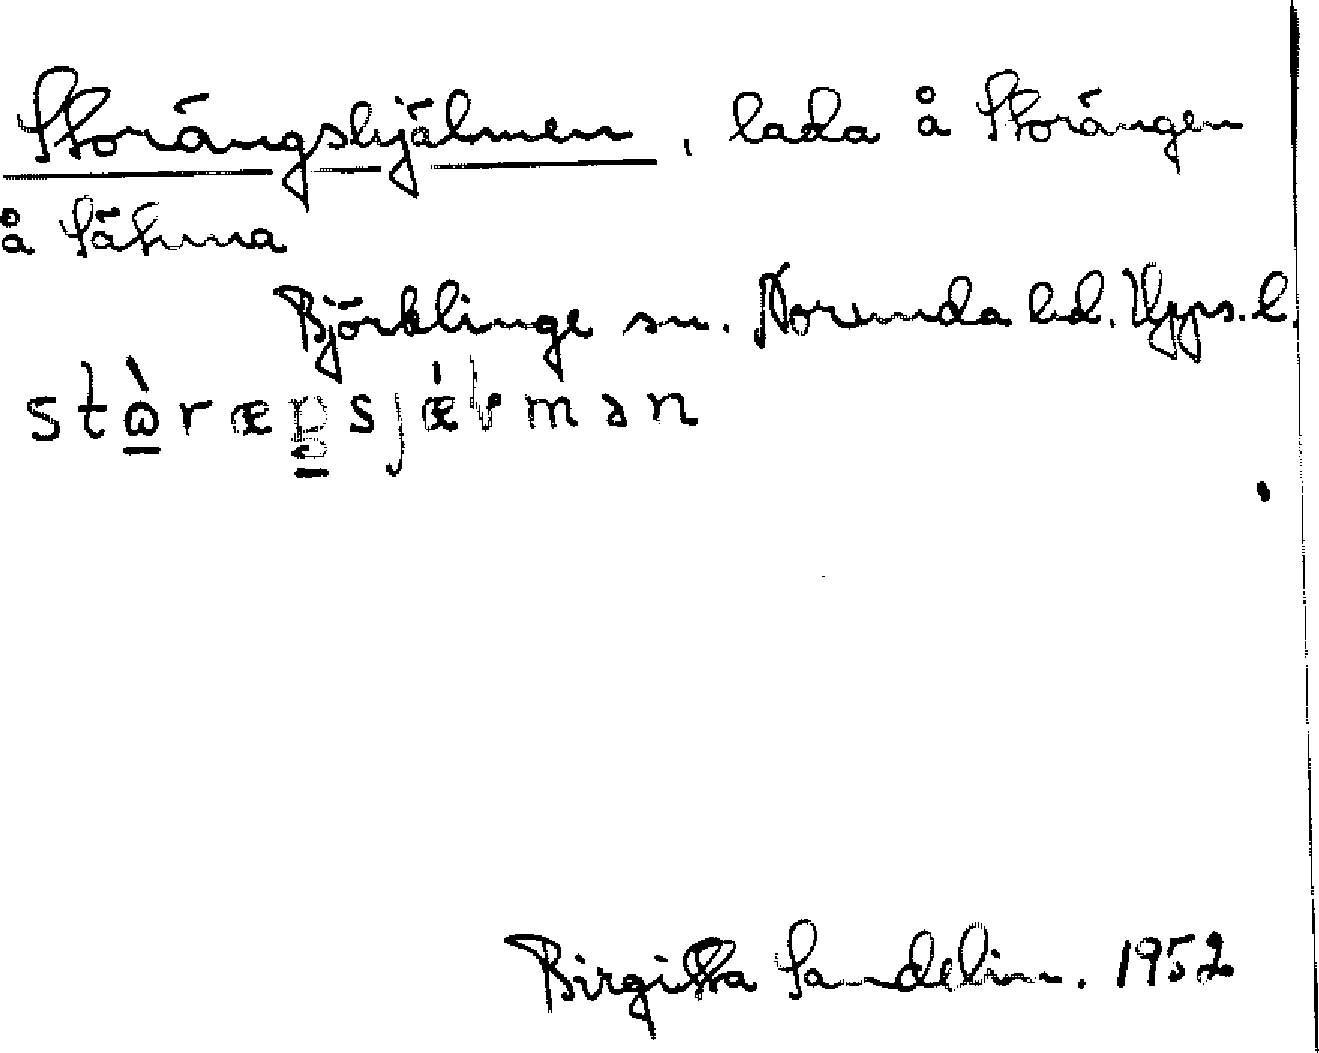 Storängshjälmen, lada å Storängen
å Sätuna
Björklinge sn. Norunda hd. Upps. l.
stòræŋsjǽlmən
Birgitta Sandelin. 1952